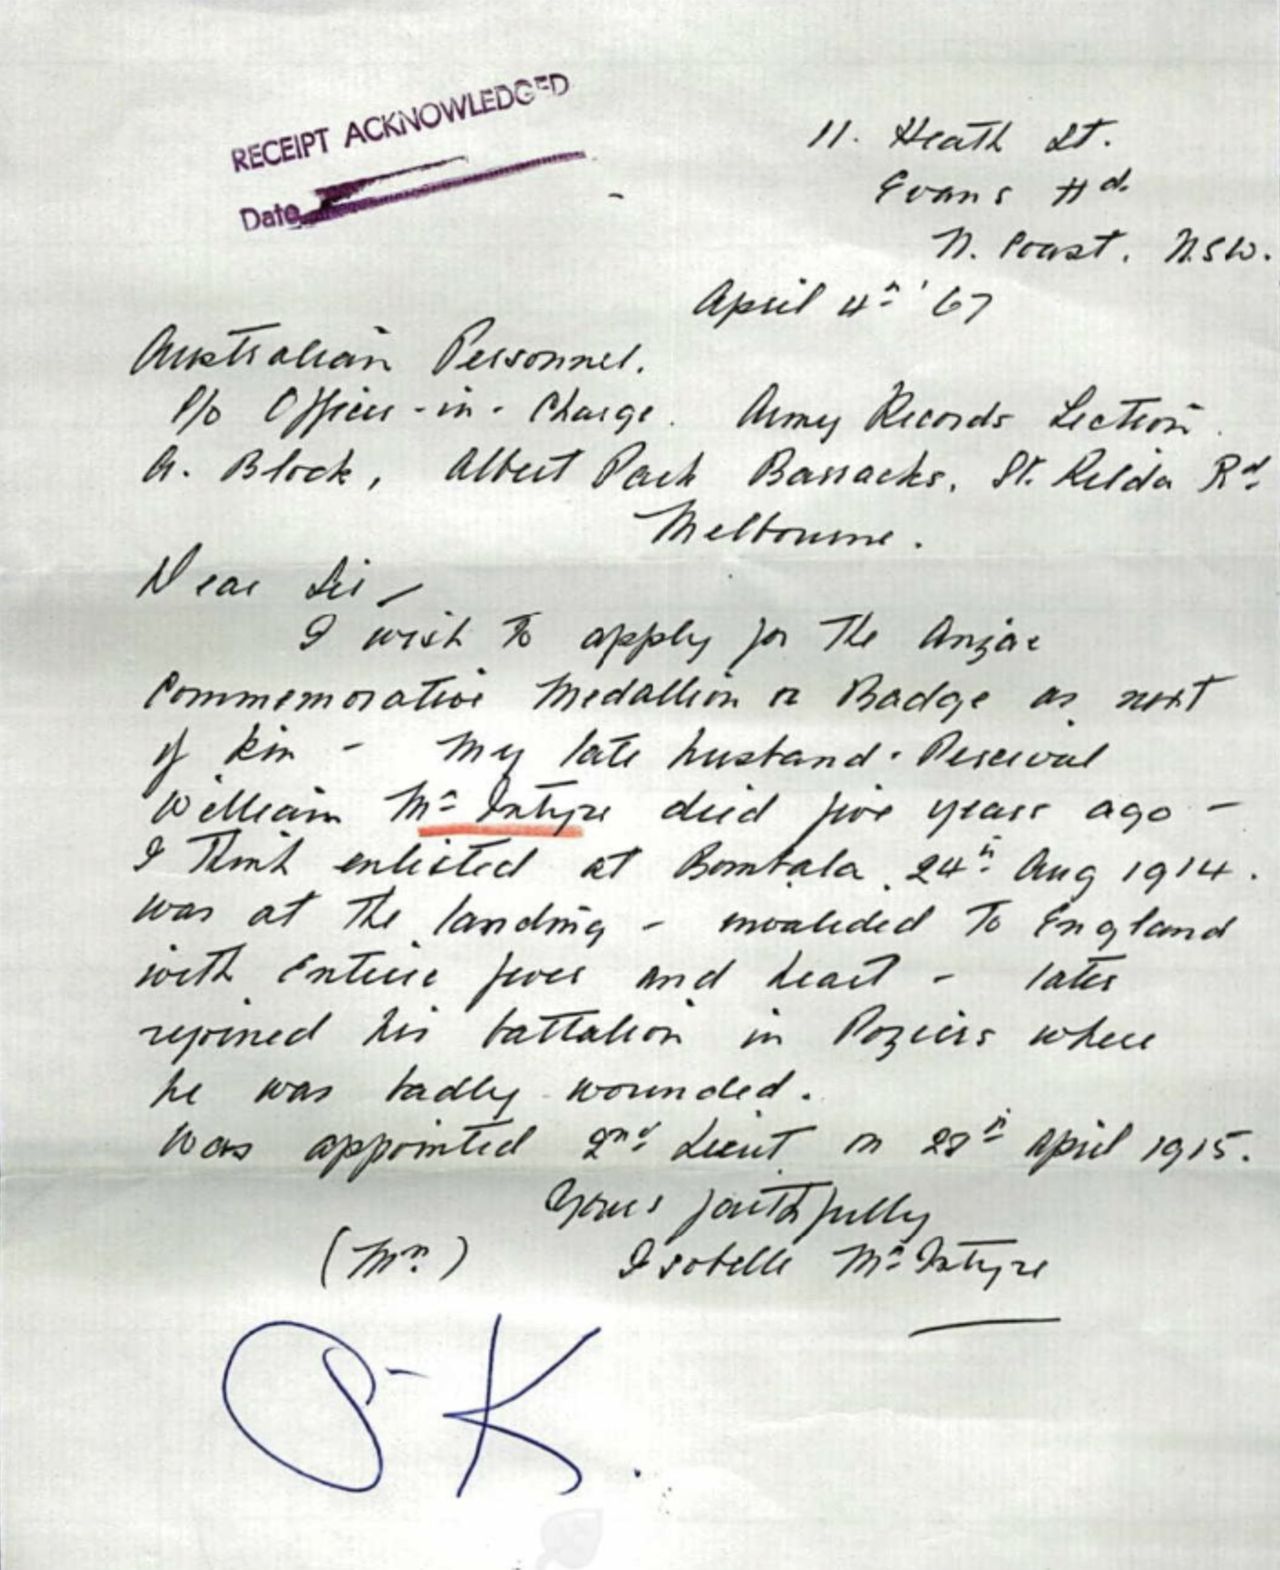 RECEIPT ACKNOWLEDGED
Date
11. Heath St.
Evans Hd.
N. Coast. N.S.W.
April 4th '67
Australian Personnel.
C/o Officer-in-Charge. Army Records Section.
A. Block, Albert Park Barracks. St. Kilda Rd.
Melbourne.
Dear Sir –
I wish to apply for the Anzac
Commemorative Medallion or Badge as next
of kin – My late husband. Percival
William McIntyre died five years ago –
I think enlisted at Bombala. 24th Aug 1914.
was at the landing – invalided to England
with Enteric fever and heart – later
rejoined his battalion in Poziers where
he was badly wounded.
Was appointed 2nd Lieut on 28th April 1915.
Yours faithfully
(Mrs.) Isobelle McIntyre
O-K.